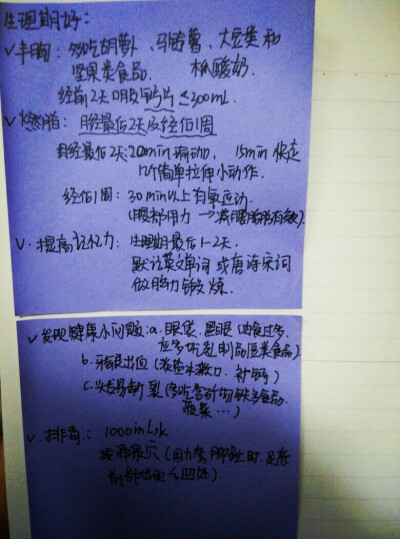 生理期好:
✓丰胸: 多吃胡萝卜、马铃薯、大豆类和
坚果类食品. 木瓜酸奶.
经前2天口服钙片≤300mL.
✓燃脂: 月经最后2天及经后1周
月经最后2天: 20min 运动, 15min 快走
几个简单拉伸小动作.
经后1周: 30min以上有氧运动.
(腹部用力→减腰腹部有效).
✓.提高记忆力: 生理期最后1-2天.
默记英文单词或唐诗宋词
做脑力锻炼.
✓发现健康小问题: a.眼袋.黑眼(肉食过多,
应多吃乳制品豆类食品)
b.牙龈出血(淡盐水漱口.补钙)
c.易断裂(多吃含矿物铁多食品.
菠菜…)
✓.排毒: 1000mL水
按涌泉穴(用力弯脚趾时.足底
前部出现凹处).